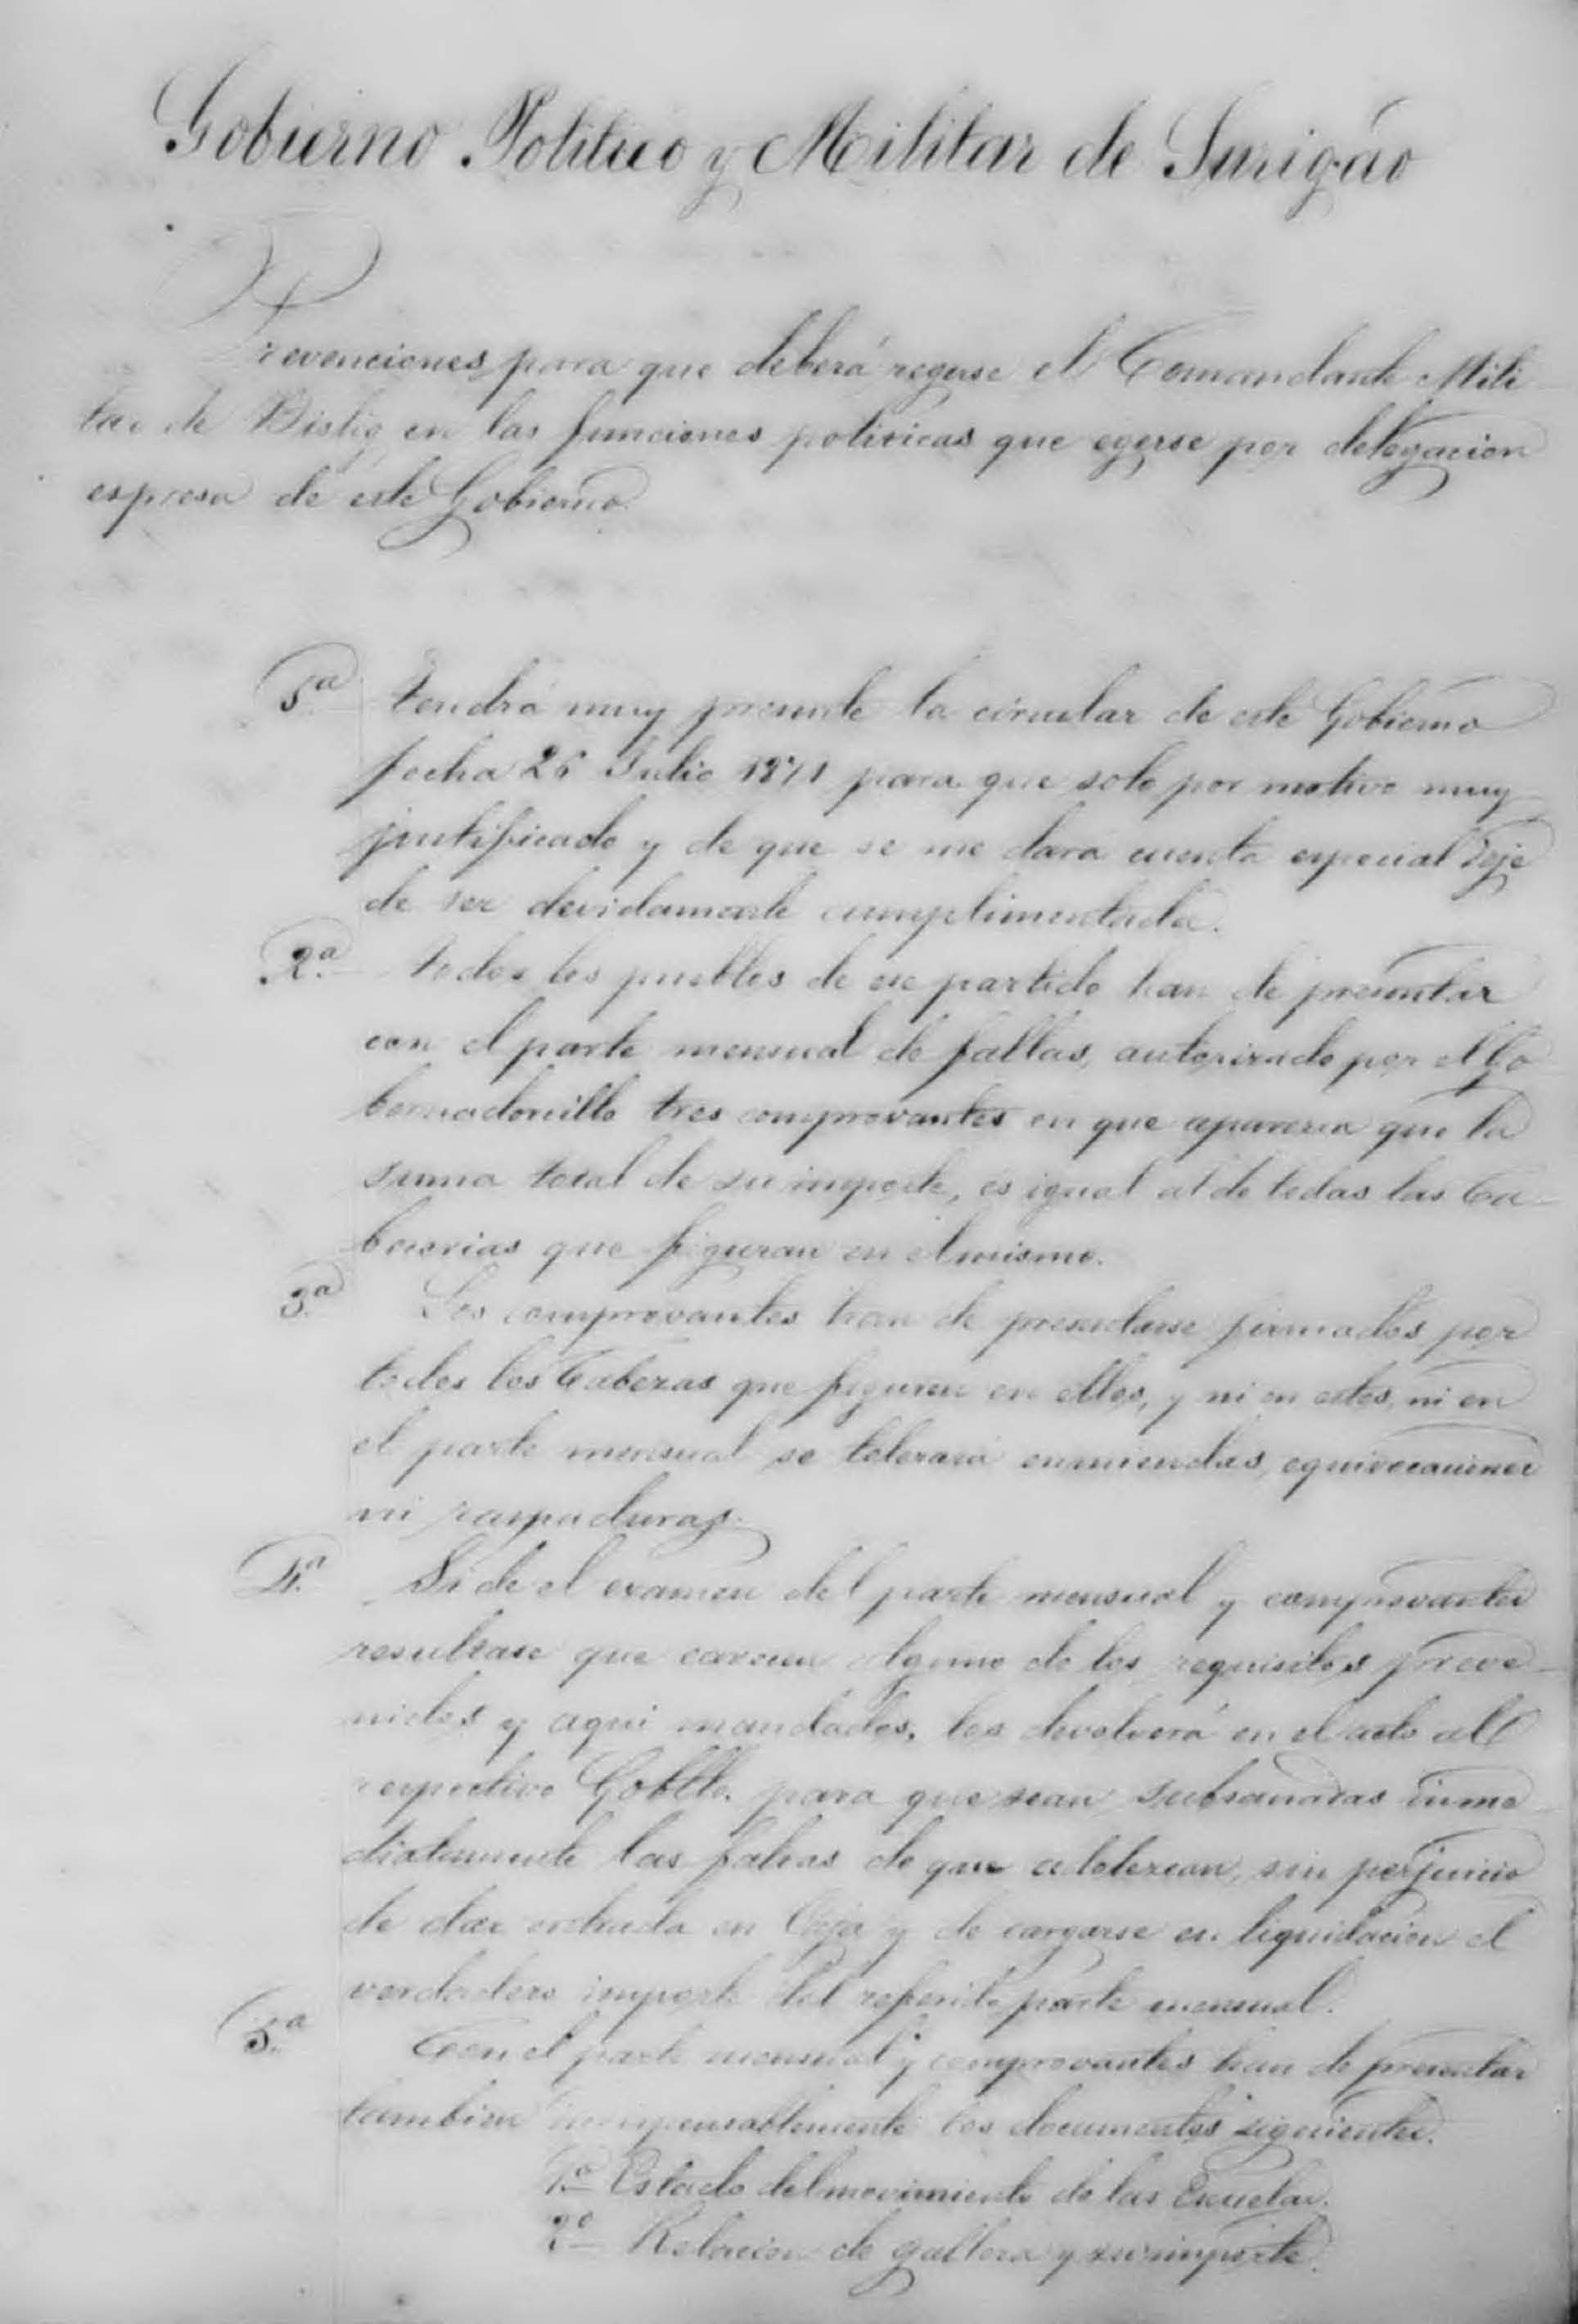 Gobierno Politico y Militar de Surigao
Prevenciones para que deberá regirse el Comandante Mili-
tar de Bislig en las funciones politicas que egerse por delegacion
espresa de este Gobierno.
1ª Tendrá muy presente la circular de este Gobierno
fecha 26 Julio 1871 para que solo por motivo muy
justificado y de que se me dara cuenta especial deje
de ser devidamente cumplimentada.
2ª Todos los pueblos de ese partido han de presentar
con el parte mensual de fallas, autorizado por el Go
bernadorcillo tres comprovantes en que aparezca que la
suma total de su importe, es igual al de todas las Ca-
becerias que figuran en el mismo.
3ª Los comprovantes han de presentarse firmados por
todos los Cabezas que figuren en ellos, y ni en estos, ni en
el parte mensual se tolerará enmiendas, equivocaciones
ni raspaduras.
4ª Si de el examen del parte mensual y comprovantes
resultase que carecen alguno de los requisitos preve-
nidos y aqui mandados, los devolverá en el acto al
respectivo Gobllo. para que sean subsanadas inme-
diatamente las faltas de que adolezcan, sin perjuicio
de dar entrada en Caja y de cargarse en liquidacion el
verdadero importe del referido parte mensual.
5ª Con el parte mensual y comprovantes han de presentar
tambien indispensablemente los documentos siguientes.
1º Estado del movimiento de las Escuelas.
2º Relacion de gallera y su importe.